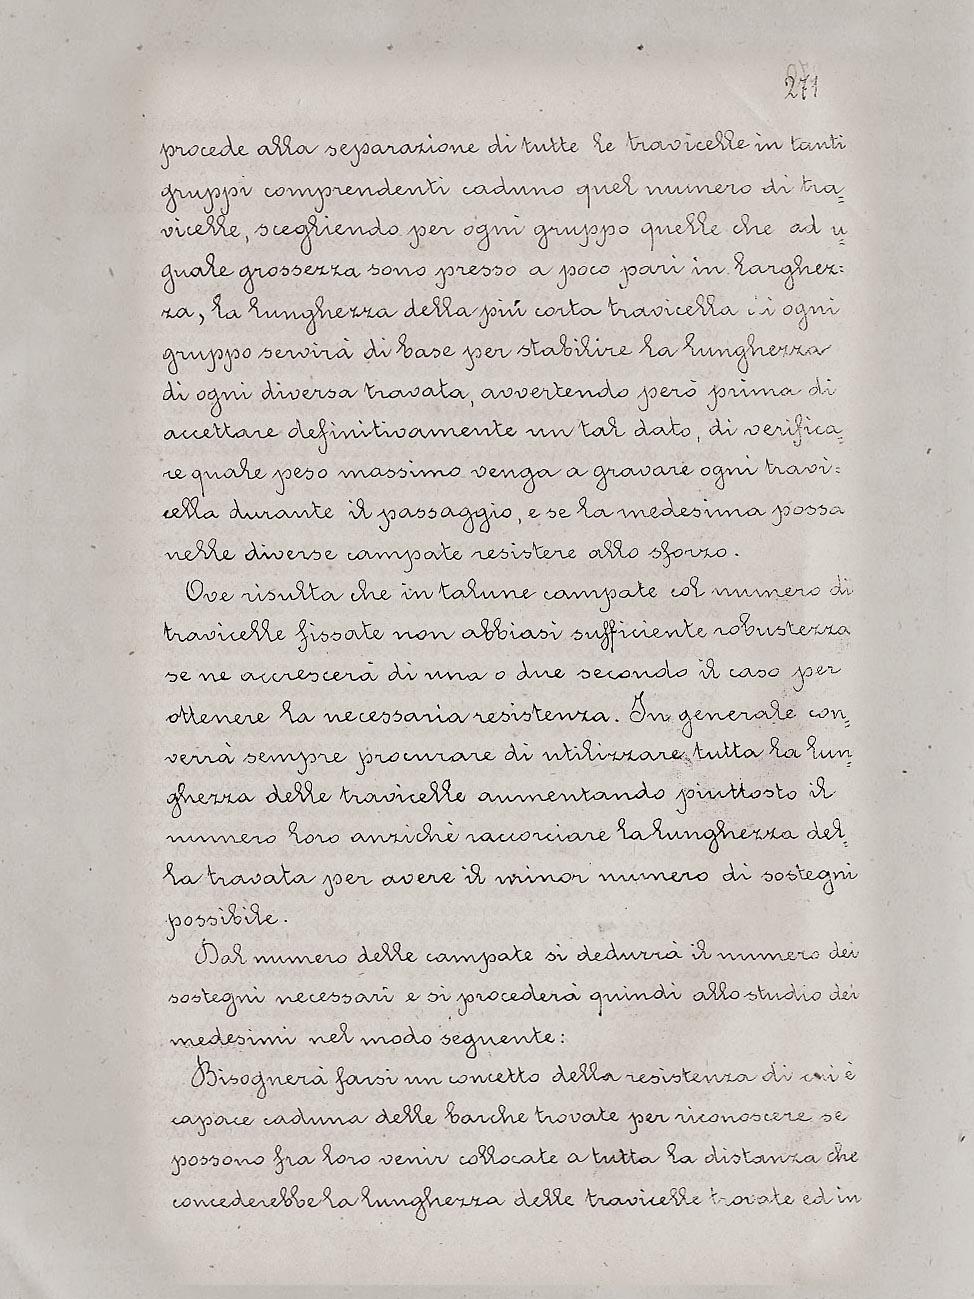 271
procede alla separazione di tutte le travicelle in tanti
gruppi comprendenti caduno quel numero di tra=
vicelle, scegliendo per ogni gruppo quelle che ad u=
guale grossezza sono presso a poco pari in larghez=
za, la lunghezza della più corta travicella di ogni
gruppo servirà di base per stabilire la lunghezza
di ogni diversa travata, avvertendo però prima di
accettare definitivamente un tal dato, di verifica=
re quale peso massimo venga a gravare ogni travi=
cella durante il passaggio, e se la medesima possa
nelle diverse campate resistere allo sforzo.
Ove risulta che in talune campate col numero di
travicelle fissate non abbiasi sufficiente robustezza
se ne accrescerà di una o due secondo il caso per
ottenere la necessaria resistenza. In generale con=
verrà sempre procurare di utilizzare tutta la lun=
ghezza delle travicelle aumentando piuttosto il
numero loro anzichè raccorciare la lunghezza del=
la travata per avere il minor numero di sostegni
possibile.
Dal numero delle campate si dedurrà il numero dei
sostegni necessari e si procederà quindi allo studio dei
medesimi nel modo seguente:
Bisognerà farsi un concetto della resistenza di cui è
capace caduna delle barche trovate per riconoscere se
possono fra loro venir collocate a tutta la distanza che
concederebbe la lunghezza delle travicelle trovate ed in